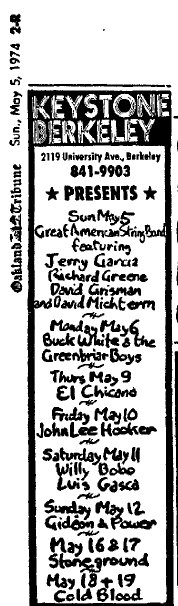 Oakland Tribune Sun., May 5, 1974 2-R
KEYSTONE
BERKELEY
2119 University Ave., Berkeley
841-9903
★ PRESENTS ★
Sun May 5
Great American String Band
featuring
Jerry Garcia
Richard Greene
David Grisman
and David Nichtern
Monday May 6
Buck White & the
Greenbriar Boys
Thurs May 9
El Chicano
Friday May 10
John Lee Hooker
Saturday May 11
Willy Bobo
Luis Gasca
Sunday May 12
Gideon & Power
May 16 & 17
Stoneground
May 18 + 19
Cold Blood